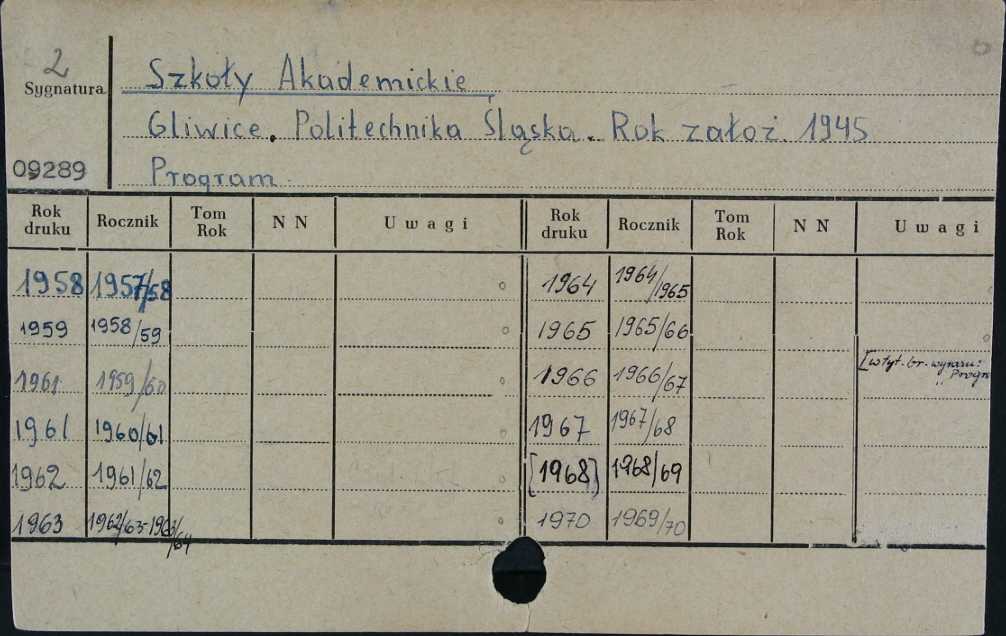 2
Sygnatura
09289
Szkoły Akademickie
Gliwice. Politechnika Śląska. Rok założ. 1945
Program
Rok druku Rocznik Tom Rok N N Uwagi Rok druku Rocznik Tom Rok N N Uwagi
1958 1957/58 1964 1964/1965
1959 1958/59 1965 1965/66
[w tyt. br. wyrazu:
"Progr
1961 1959/60 1966 1966/67
1961 1960/61 1967 1967/68
1962 1961/62 [1968] 1968/69
1963 1962/63-1963/64 1970 1969/70